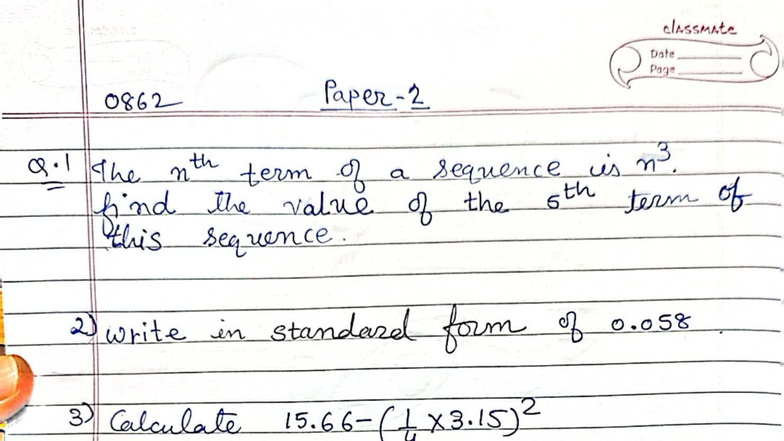 classmate
Date
Page
0862 Paper-2
Q.1 The nth term of a sequence is n³.
find the value of the 5th term of
this sequence.
2) write in standard form of 0.058
3) Calculate 15.66-(1/4 ×3.15)²